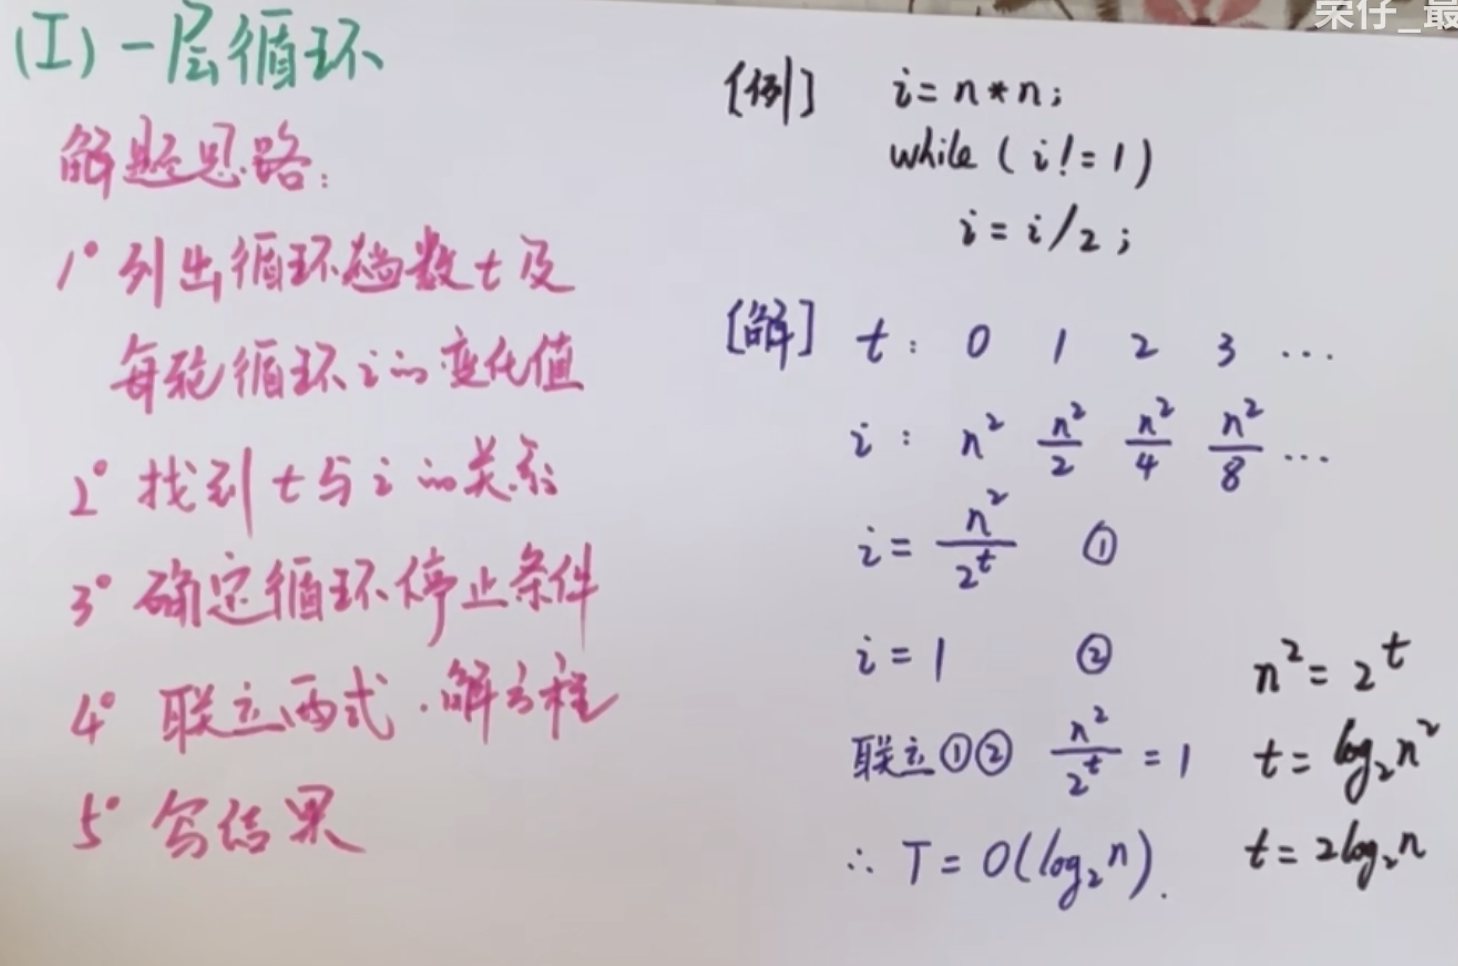 荣仔_最
(I) 一层循环
解题思路：
1° 列出循环趟数t及
每轮循环i的变化值
2° 找到t与i的关系
3° 确定循环停止条件
4° 联立两式.解方程
5° 写结果
[例] i=n*n;
while(i!=1)
i=i/2;
[解] t: 0 1 2 3 ...
i: n² n²/2 n²/4 n²/8 ...
i = n²/2^t ①
i = 1 ②
联立①② n²/2^t = 1
∴ T = O(log₂n).
n² = 2^t
t = log₂n²
t = 2log₂n